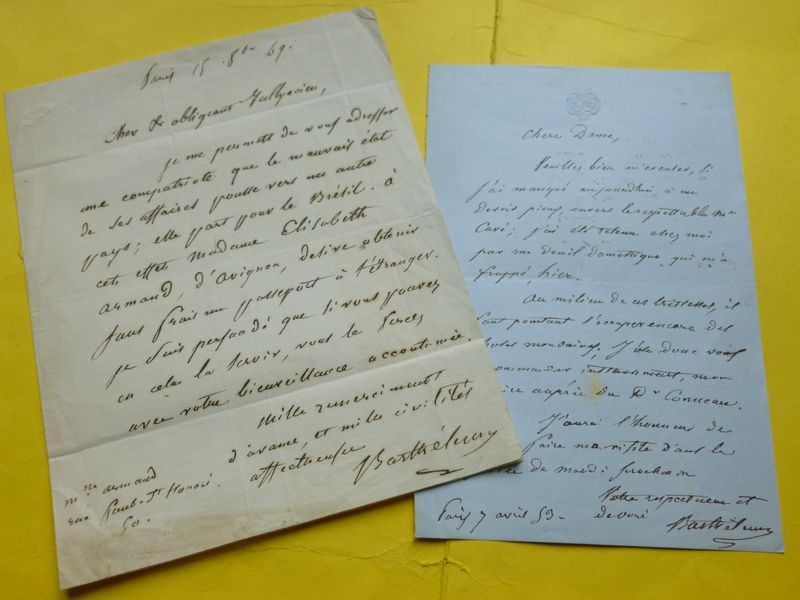 Paris 15 8bre 49.
Cher & obligeant
je me permets de vous adresser
une compatriote que le mauvais état
de ses affaires pousse vers un autre
pays; elle part pour le Brésil. à
cet effet Madame Elisabeth
armand, d'avignon, desire obtenir
sans frais un passeport à l'étranger.
je suis persuadé que si vous pouvez
en cela la servir, vous le ferez
avec votre bienveillance accoutumée.
Mille remerciments
d'avance, et mille civilités
affectueuses
Barthélemy
Mme armand
rue Faubt St Honoré
50.
Chere Dame,
Veuillez bien m'excuser, si
j'ai manqué aujourdhui, à un
devoir pieux envers le respectable Mr
Cavé; j'ai été retenu chez moi
par un deuil domestique qui m'a
frappé hier.
Au milieu de ces tristesses, il
faut pourtant s'occuper encore des
choses mondaines; J'ose donc vous
recommander instamment, mon
auprès du Dr
J'aurai l'honneur de
faire ma visite dans la
de mardi prochain
Votre respectueux et
devoué
Paris 7 avril 53
Barthélemy